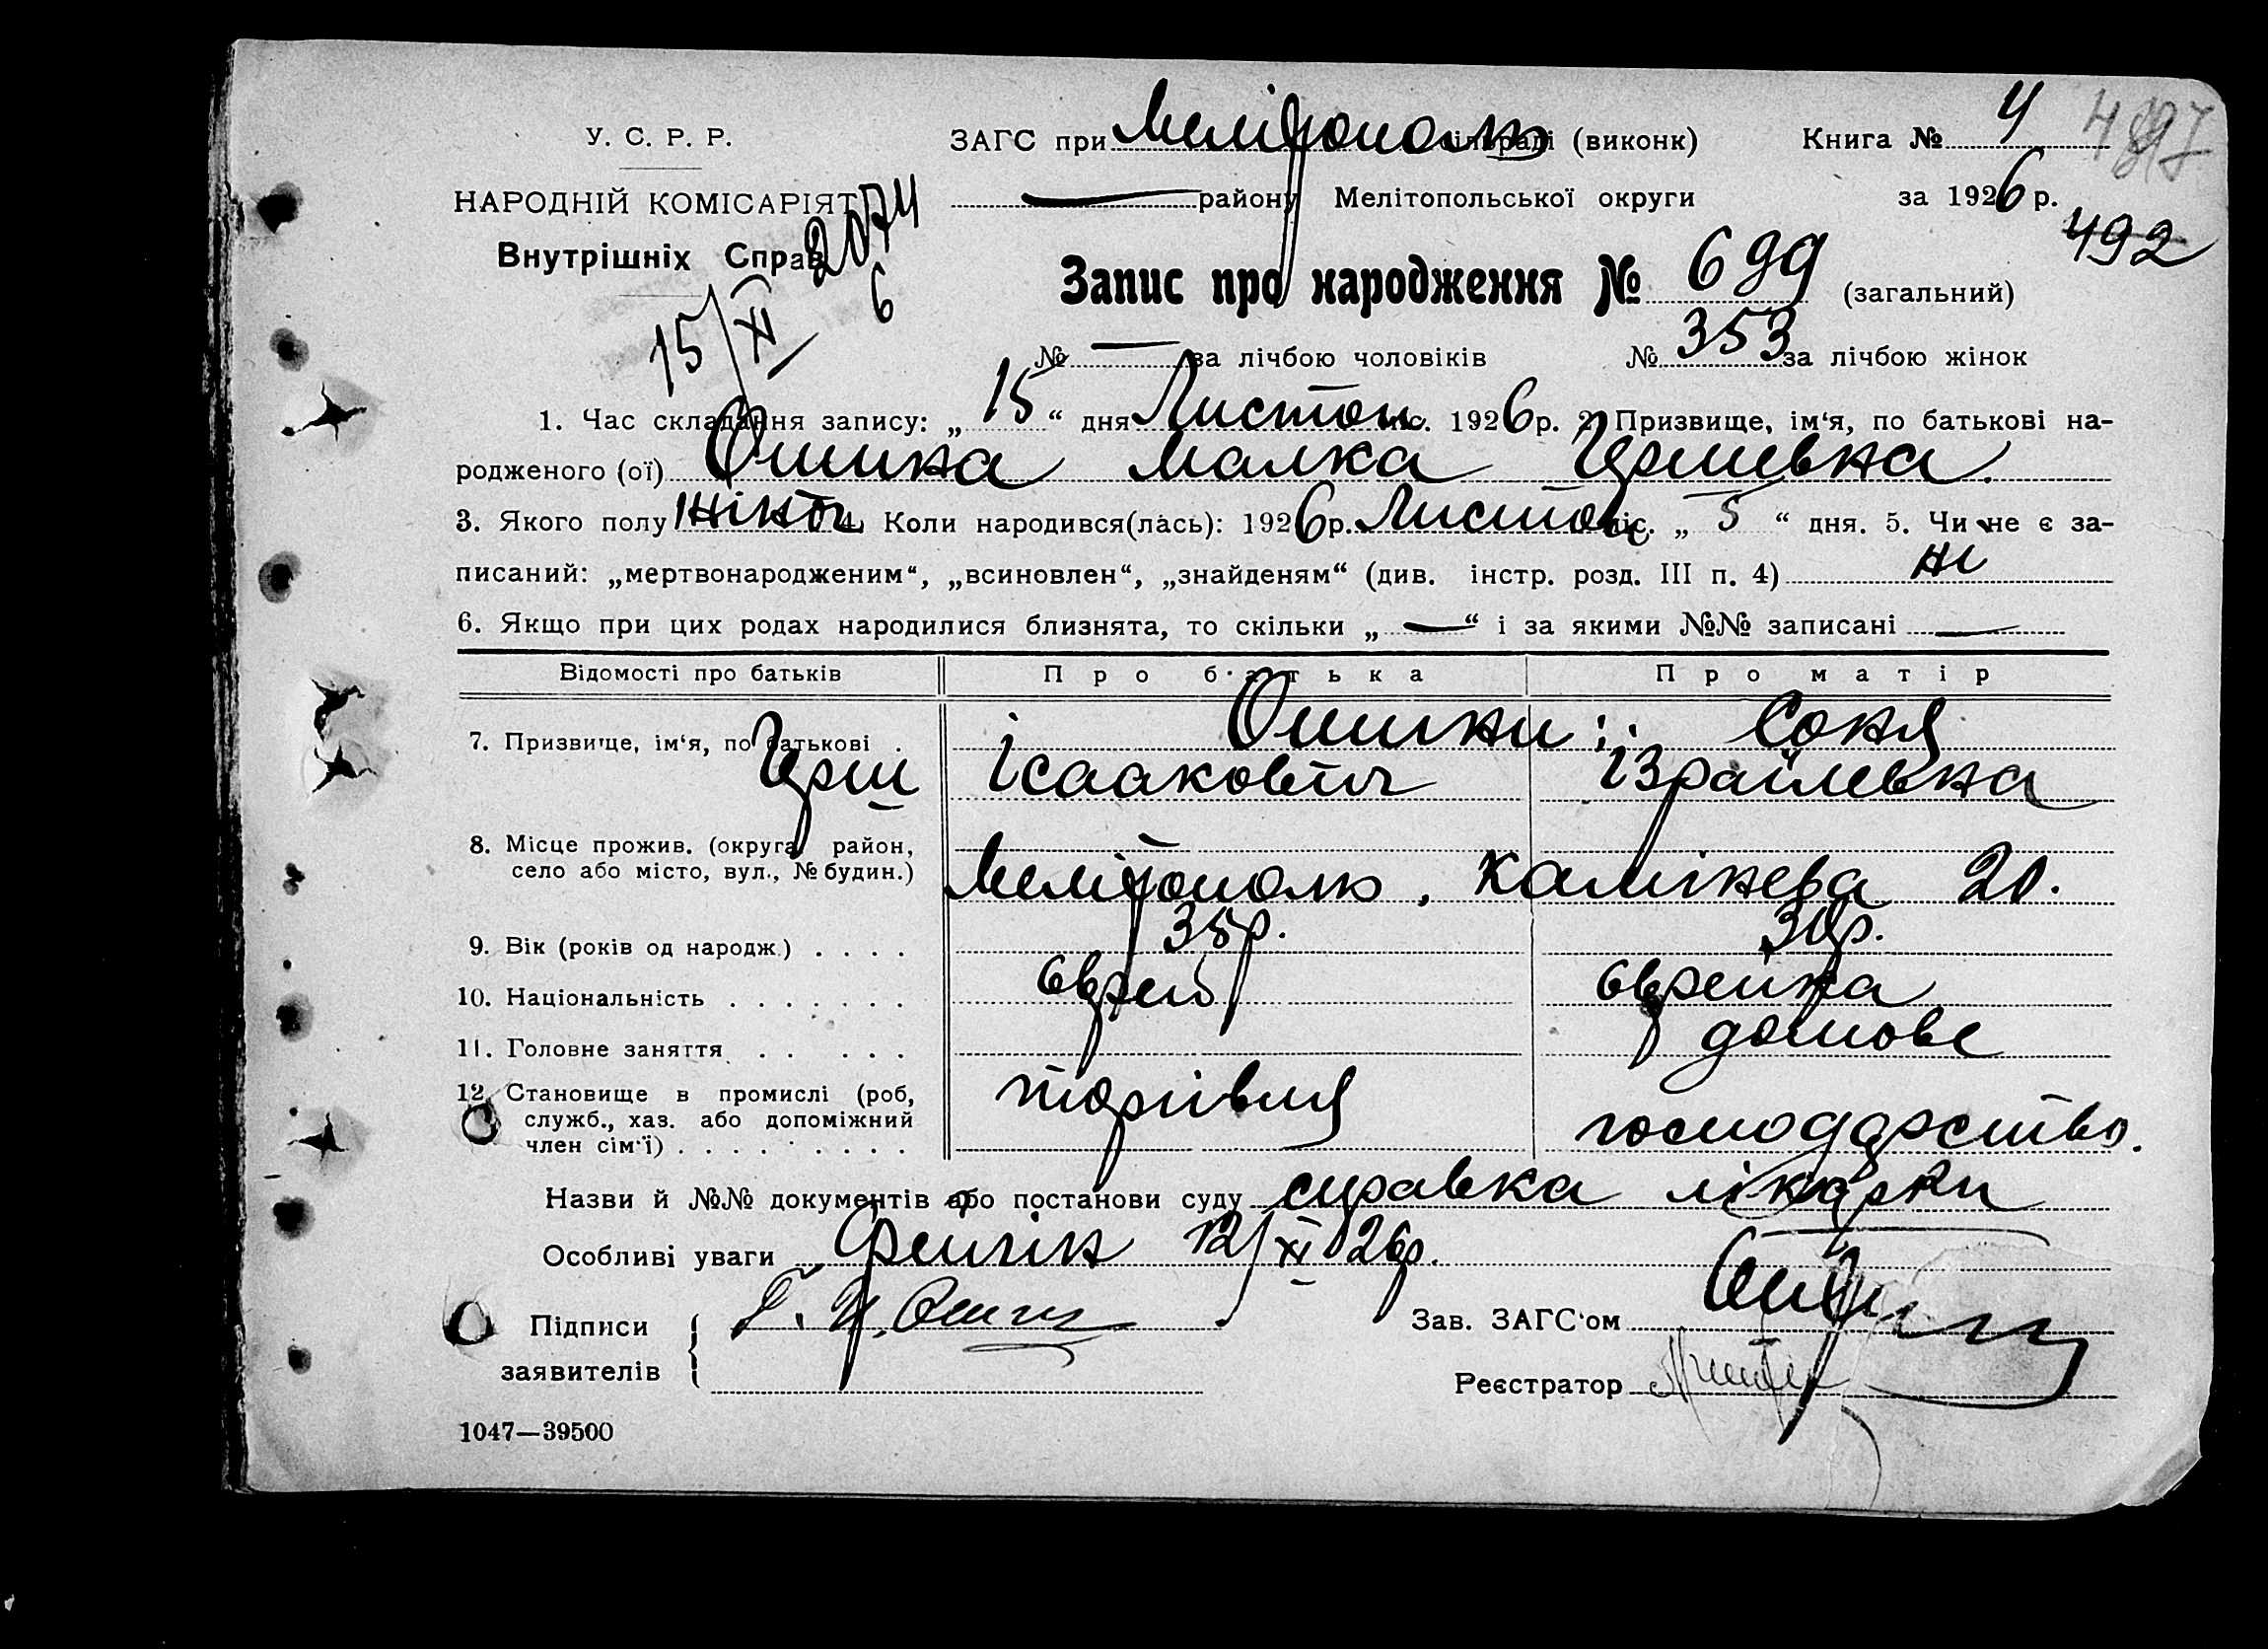 У. С. Р. Р.
НАРОДНІЙ КОМІСАРІЯТ
Внутрішніх Справ
2074
6
15/XI
ЗАГС при Мелітополь міськраді (виконк) Книга № 4
району Мелітопольської округи за 1926 р.
492
Запис про народження № 699 (загальний)
№ — за лічбою чоловіків № 353 за лічбою жінок
1. Час складання запису: „ 15 “ дня Листоп міс. 1926 р. 2. Призвище, ім‘я, по батькові на-
родженого (ої) Ошика Малка Цршевна.
3. Якого полу жіноч 4. Коли народився(лась): 1926 р. Листоп міс. „ 5 “ дня. 5. Чи не є за-
писаний: „мертвонародженим“, „всиновлен“, „знайденям“ (див. інстр. розд. III п. 4) ні
6. Якщо при цих родах народилися близнята, то скільки „ — “ і за якими №№ записані —
Відомості про батьків Про батька Про матір
7. Призвище, ім‘я, по батькові . Ошики; Соня
Црш Ісаакович Ізраїлевна
8. Місце прожив. (округа, район,
село або місто, вул., № будин.) Мелітополь, Калінева 20.
9. Вік (років од народж.) . . . . 35 р. 30 р.
10. Національність . . . . . . . єврей єврейка
11. Головне заняття . . . . . . домове
12. Становище в промислі (роб, торгівля
служб., хаз. або допоміжний господарство.
член сім‘ї) . . . . . . . . .
Назви й №№ документів або постанови суду справка лікарки
Особливі уваги Фейгін 12/XI 26 р.
Підписи
заявителів
Зав. ЗАГС‘ом
Реєстратор
1047—39500